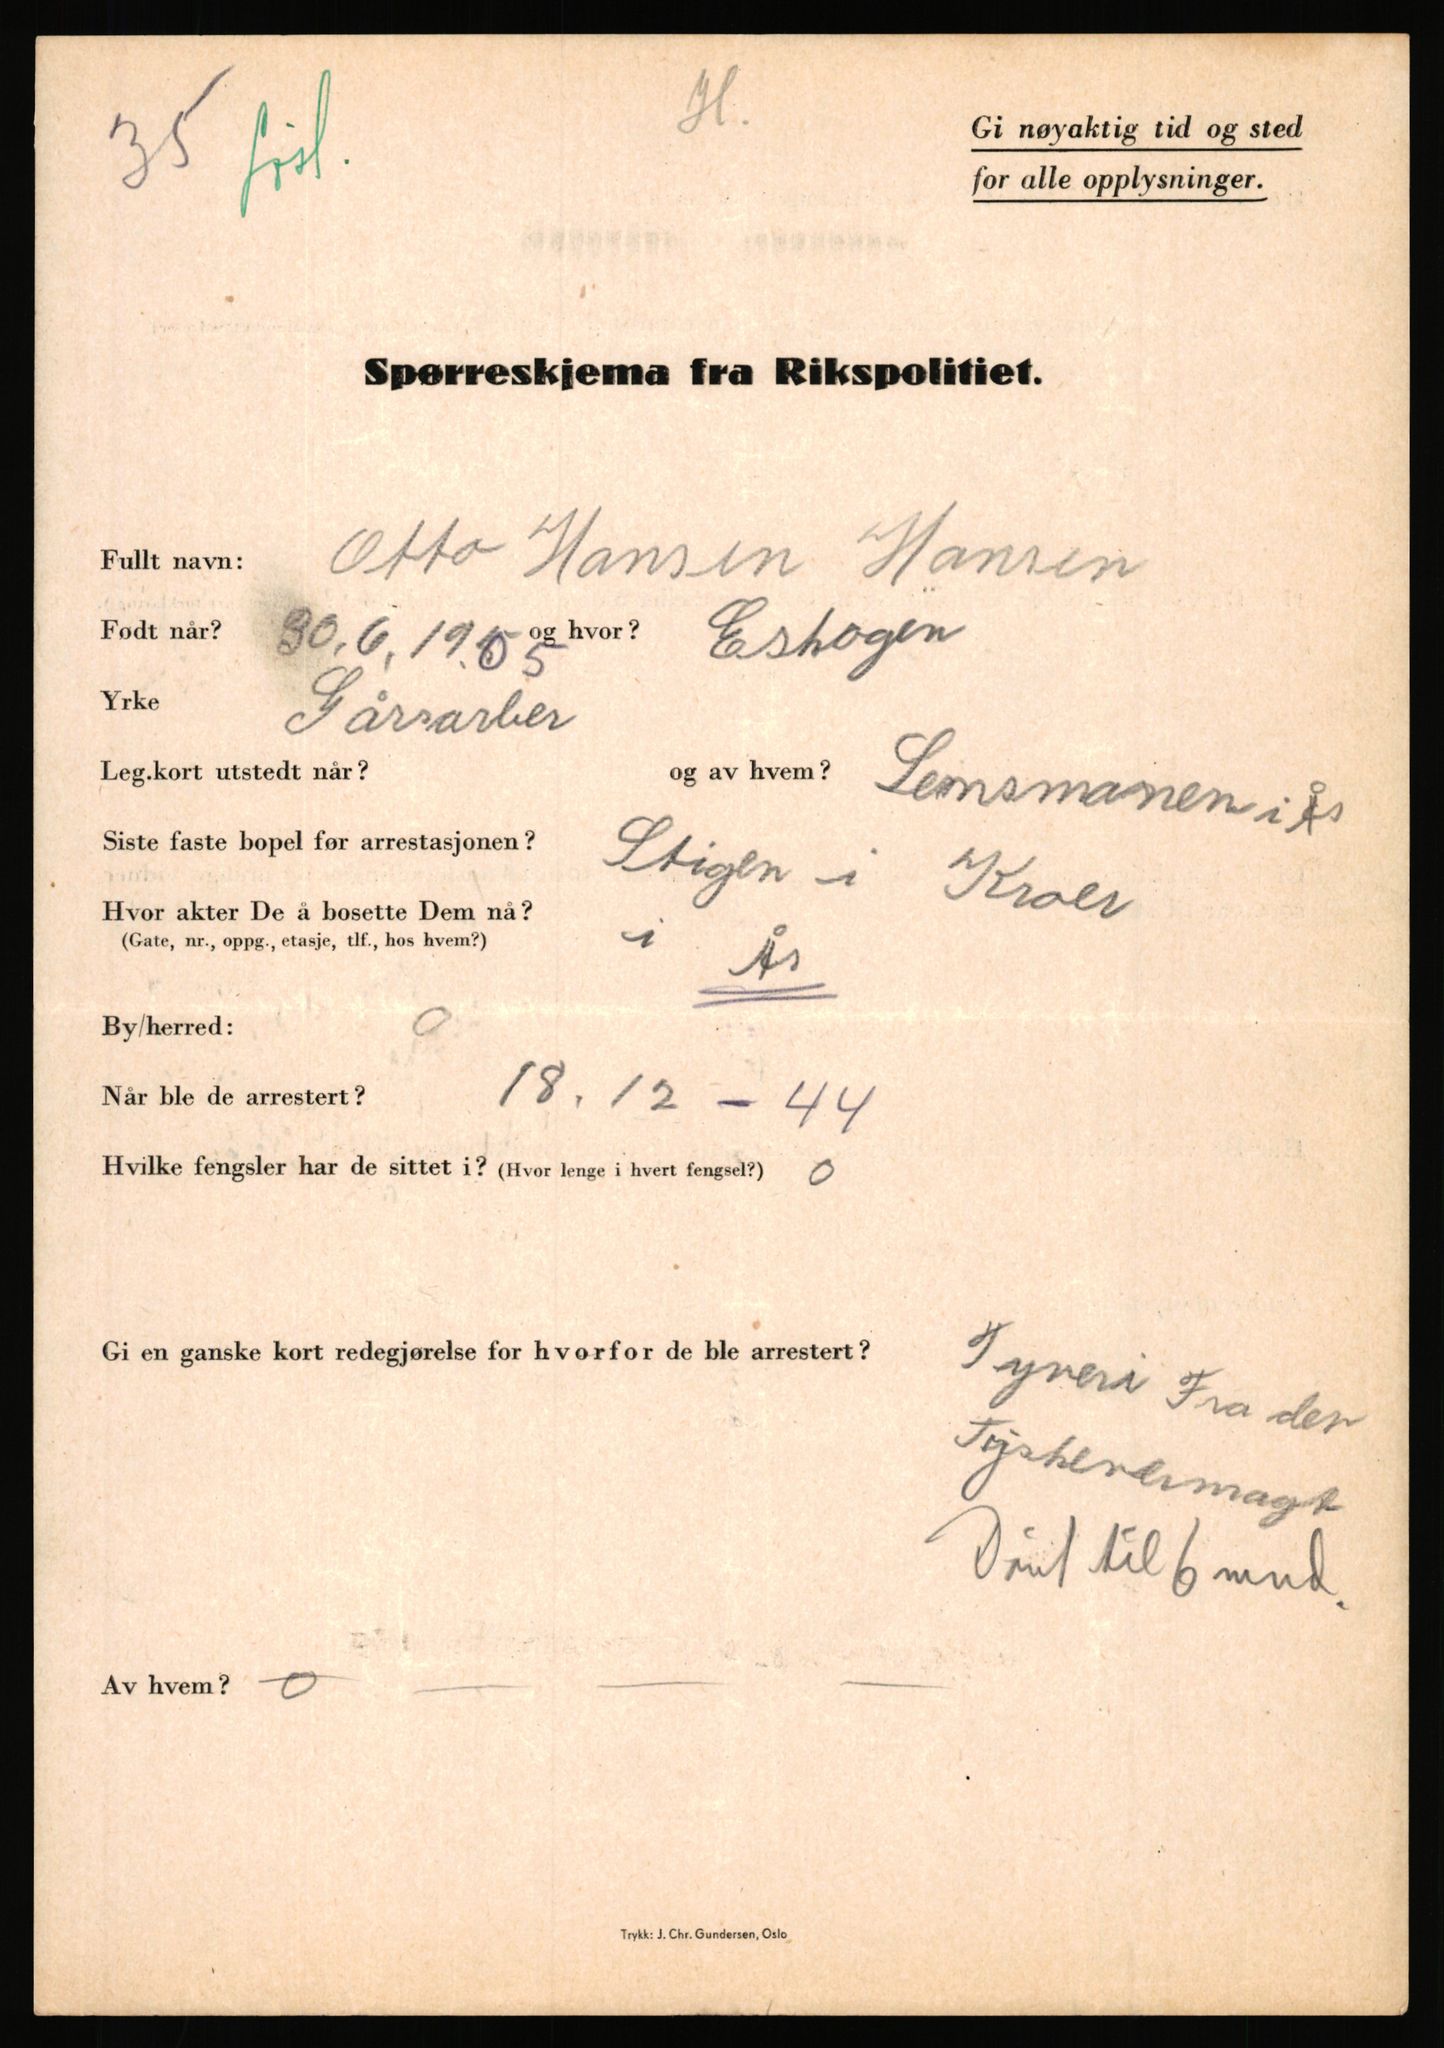 35 løsl.
H.
Gi nøyaktig tid og sted
for alle opplysninger.
Spørreskjema fra Rikspolitiet.
Fullt navn: Otto Hansen Hansen
Født når? 30.6.1905 og hvor? Eshogen
Yrke Gårsarber
Leg.kort utstedt når? og av hvem? Lensmanen i Ås
Siste faste bopel før arrestasjonen? Stigen i Kroer
Hvor akter De å bosette Dem nå? i Ås
(Gate, nr., oppg., etasje, tlf., hos hvem?)
By/herred: 0
Når ble de arrestert? 18.12 - 44
Hvilke fengsler har de sittet i? (Hvor lenge i hvert fengsel?) 0
Gi en ganske kort redegjørelse for hvorfor de ble arrestert? Tyveri Fra den
Tyskevermagt
Dømt til 6 mnd.
Av hvem? 0 — — —
Trykk: J. Chr. Gundersen, Oslo